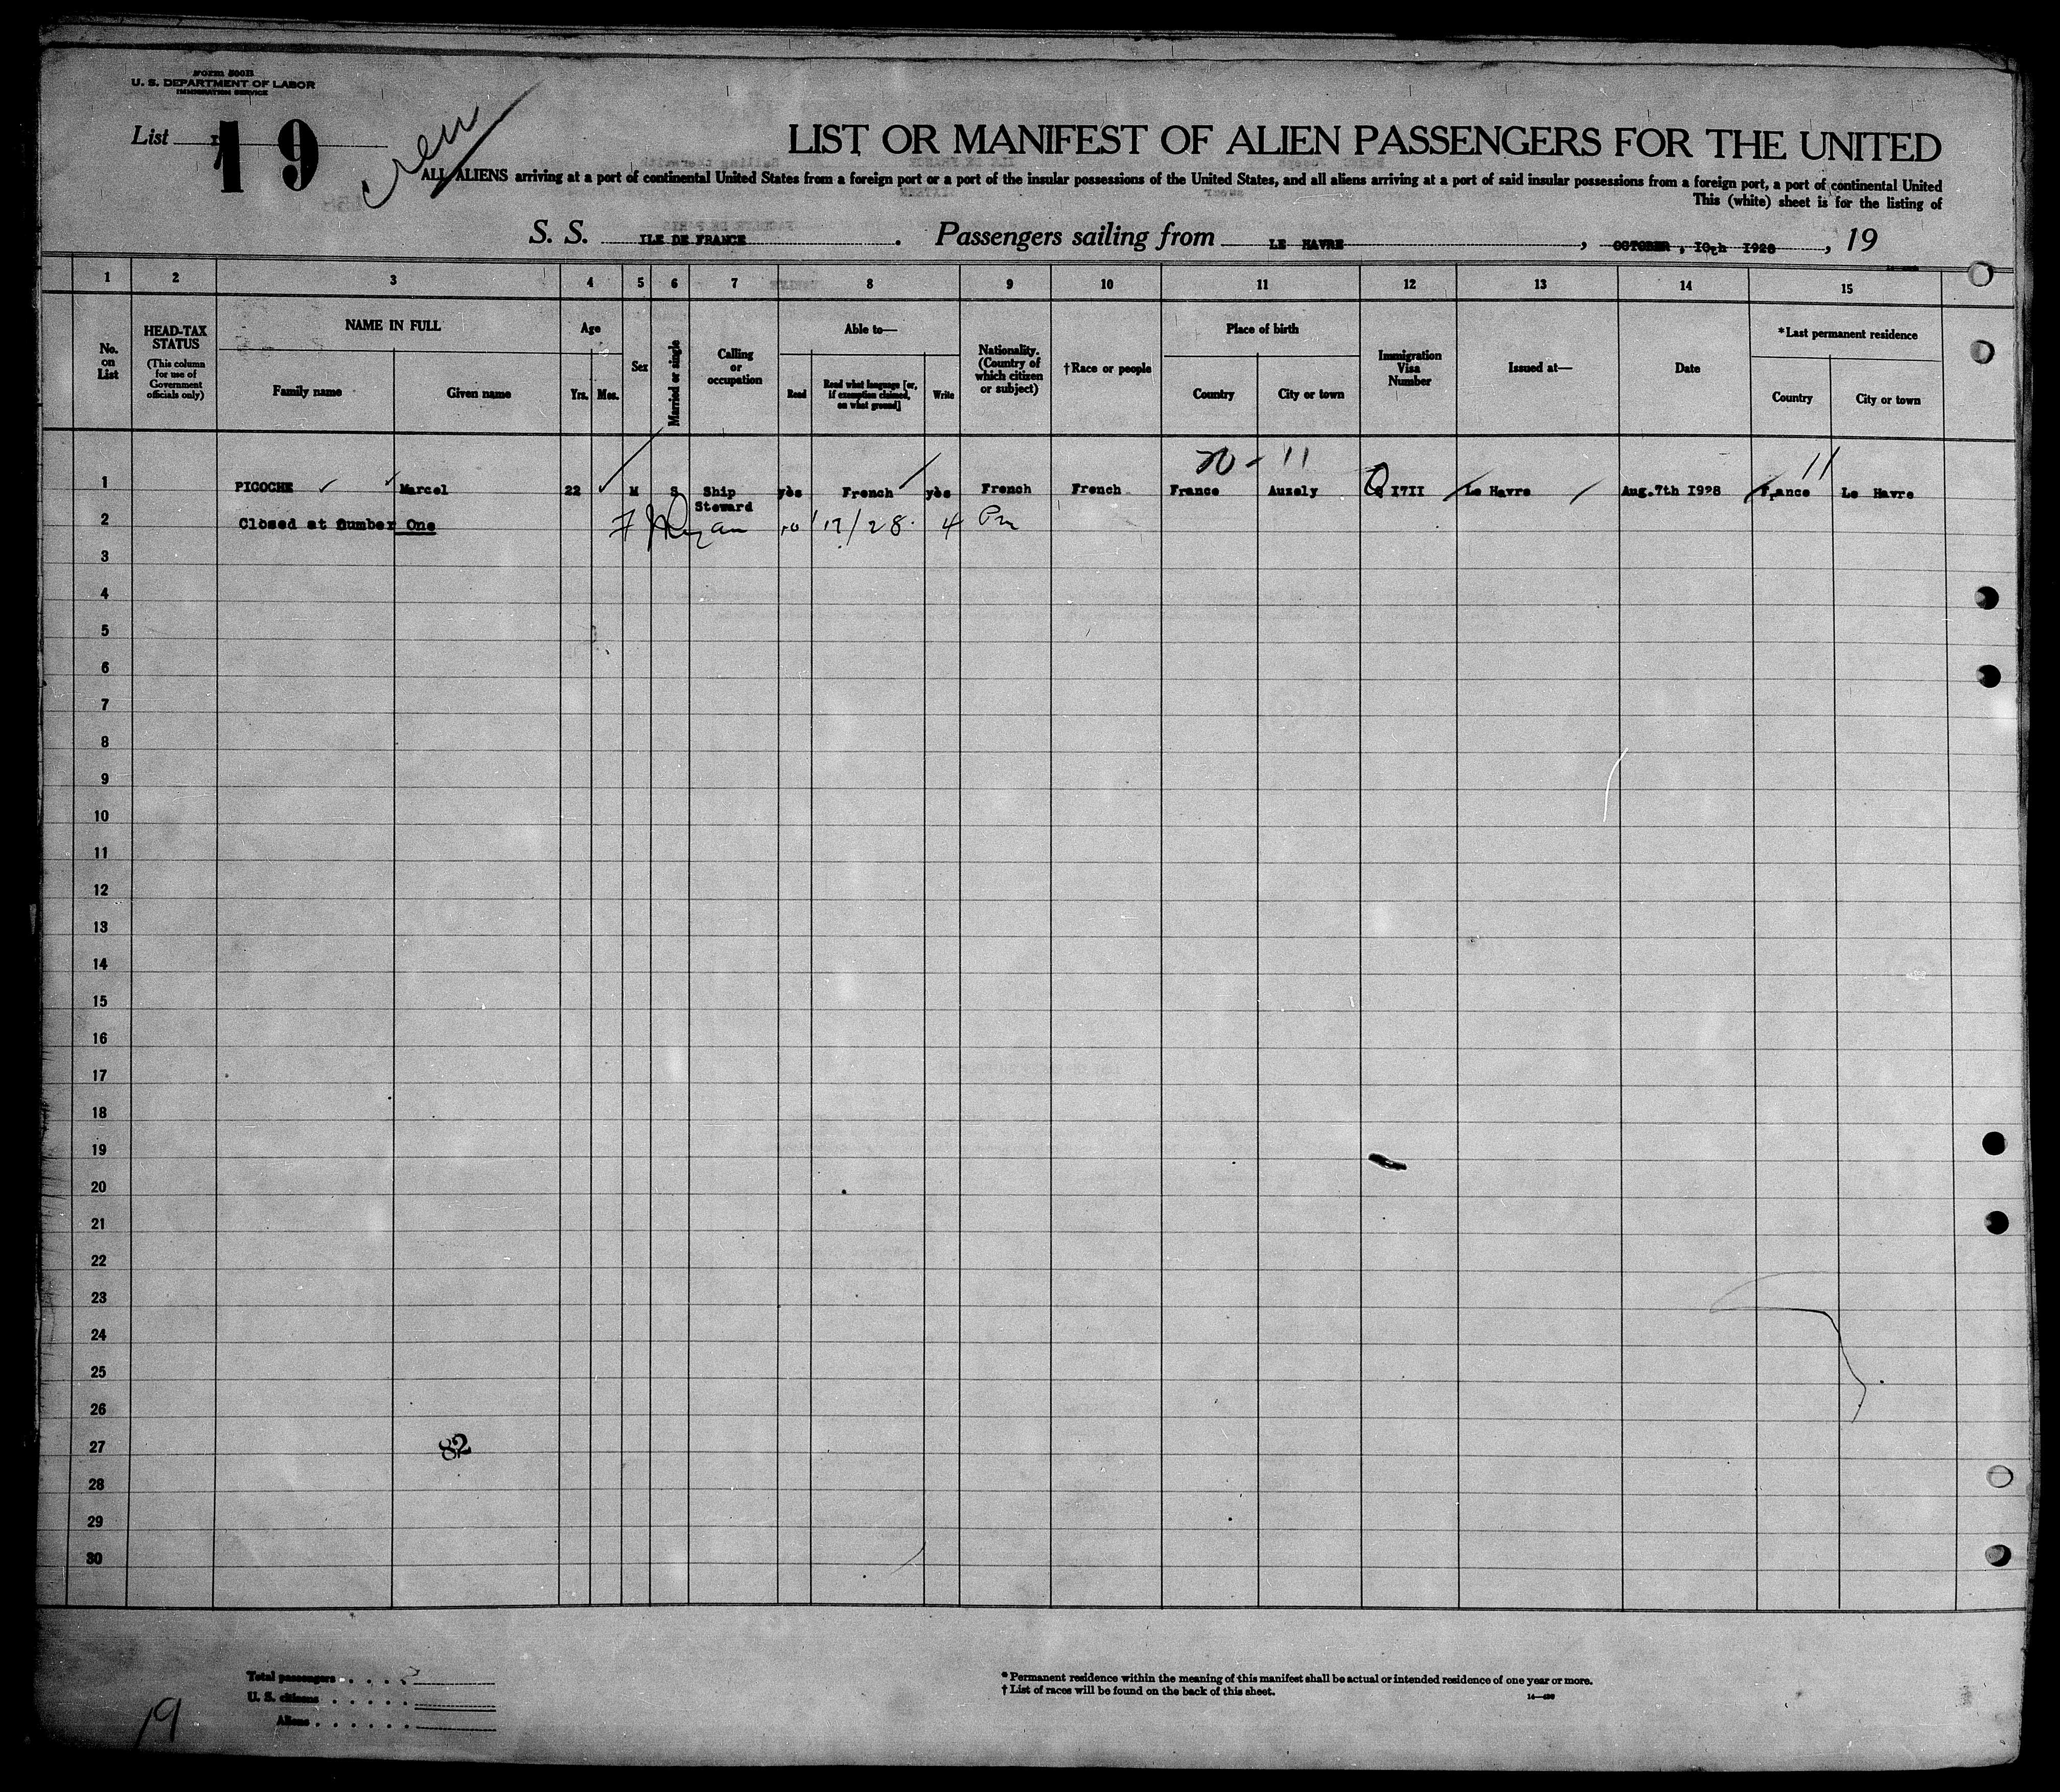 Form 500B
U. S. DEPARTMENT OF LABOR
IMMIGRATION SERVICE
List 19
Crew
LIST OR MANIFEST OF ALIEN PASSENGERS FOR THE UNITED
ALL ALIENS arriving at a port of continental United States from a foreign port or a port of the insular possessions of the United States, and all aliens arriving at a port of said insular possessions from a foreign port, a port of continental United
This (white) sheet is for the listing of
S. S. ILE DE FRANCE . Passengers sailing from LE HAVRE , OCTOBER , I0th I928 , 19
1 2 3 4 5 6 7 8 9 10 11 12 13 14 15
No. on List
HEAD-TAX STATUS
(This column for use of Government officials only)
NAME IN FULL
Family name Given name
Age
Yrs. Mos.
Sex
Married or single
Calling or occupation
Able to—
Read
Read what language [or, if exemption claimed, on what ground]
Write
Nationality. (Country of which citizen or subject)
†Race or people
Place of birth
Country City or town
Immigration Visa Number
Issued at—
Date
*Last permanent residence
Country City or town
11 11
1 PICOCHE Marcel 22 M S Ship Steward yès French yès French French France Auzely Q I7II Le Havre Aug.7th I928 France Le Havre
2 Closed at number One Ryan 10/17/28 4 Pm
3
4
5
6
7
8
9
10
11
12
13
14
15
16
17
18
19
20
21
22
23
24
25
26
27
82
28
29
30
Total passengers
U. S. citizens
Aliens
* Permanent residence within the meaning of this manifest shall be actual or intended residence of one year or more.
† List of races will be found on the back of this sheet.
19